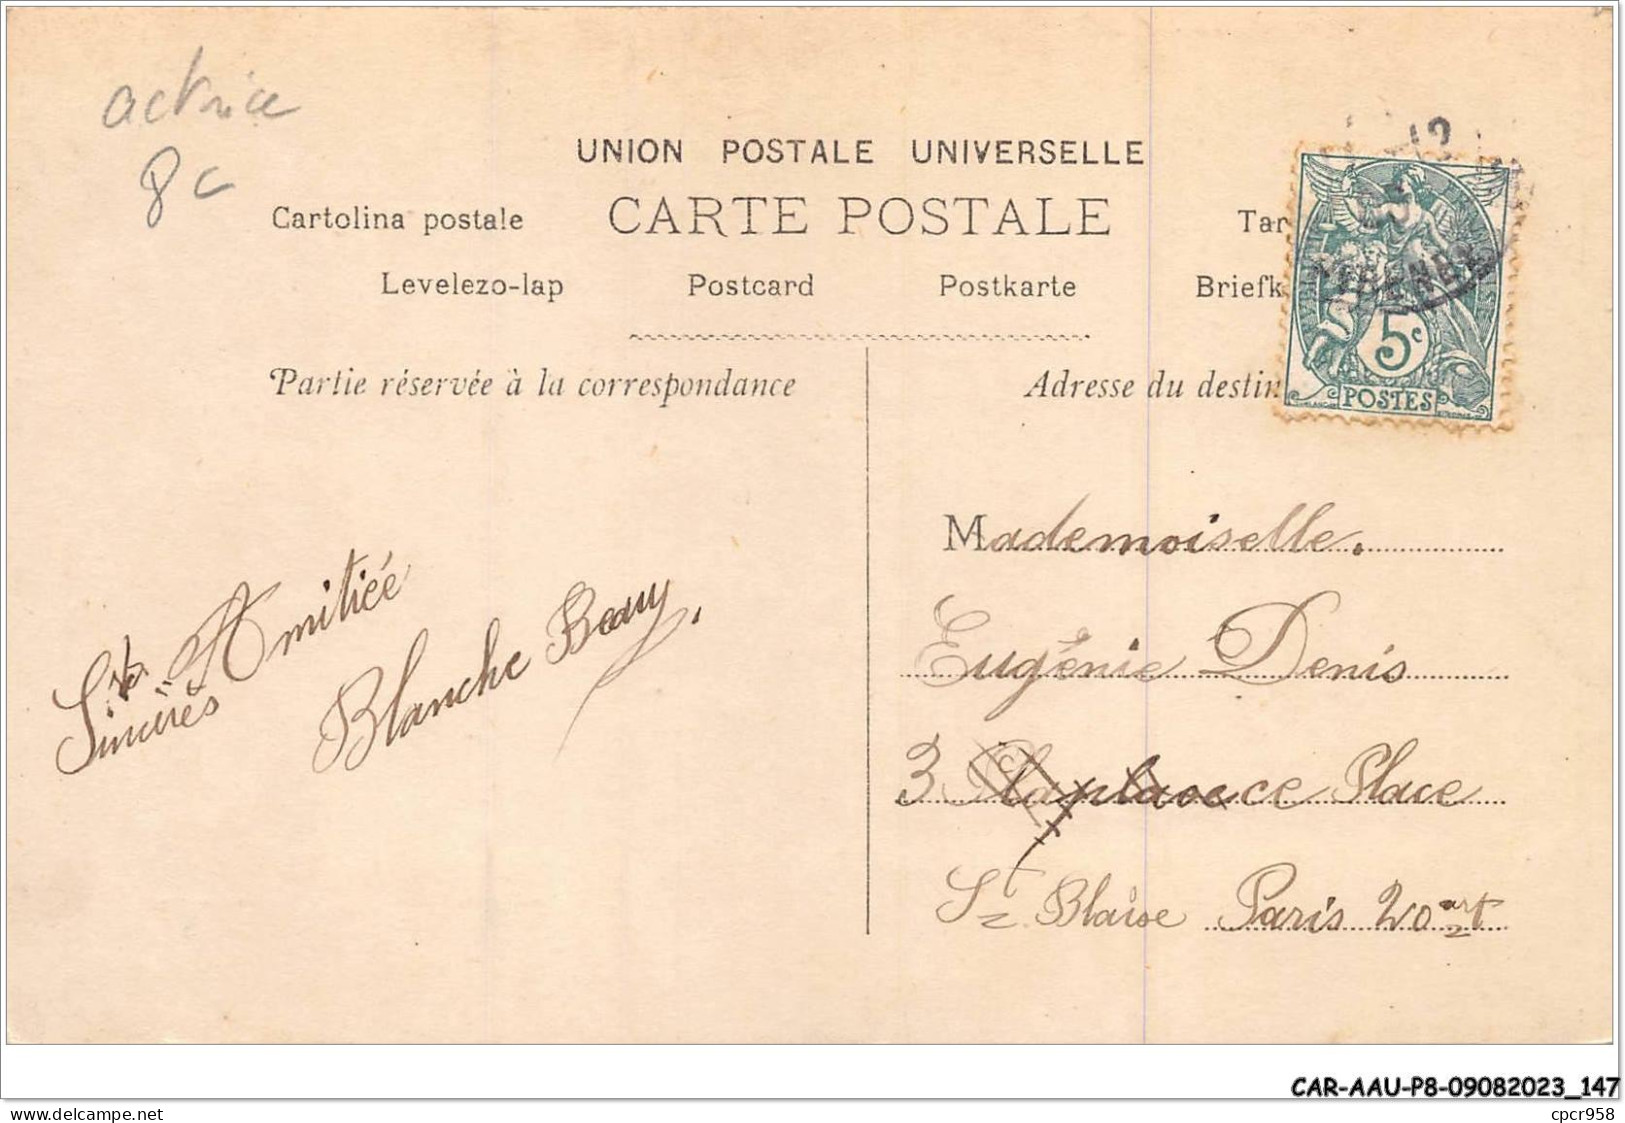 actrice
8c
UNION POSTALE UNIVERSELLE
CARTE POSTALE
Cartolina postale
Tar
Levelezo-lap
Postcard
Postkarte
Briefk
Partie réservée à la correspondance
Adresse du destin
5c
POSTES
Sincères
Amitiée
Blanche Beauy.
Mademoiselle.
Eugénie Denis
3 Place
St Blaise Paris 20 art
CAR-AAU-P8-09082023_147
delcampe.net
cpcr958